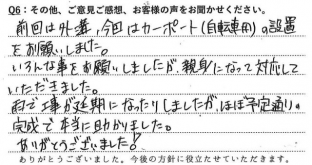 Q6：その他、ご意見ご感想、お客様の声をお聞かせください。
前回は外塀、今回はカーポート(自転車用)の設置
をお願いしました。
いろんな事をお願いしましたが、親身になって対応して
いただきました。
雨で工事が延期になったりしましたが、ほぼ予定通りの
完成で本当に助かりました。
ありがとうございました!
ありがとうございました。今後の方針に役立たせていただきます。